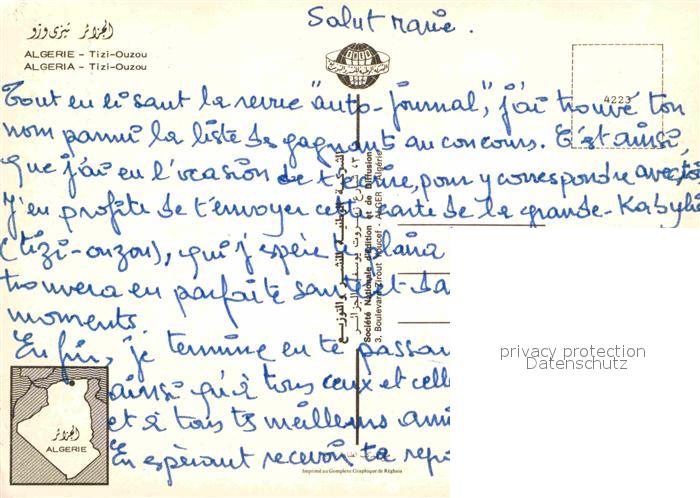 Salut Marie.
الجزائر تيزي وزو
ALGERIE – Tizi-Ouzou
ALGERIA – Tizi-Ouzou
4223
Tout en lisant la revue "auto-journal", j'ai trouvé ton
nom parmi la liste des gagnants au concours. C'est ainsi,
que j'ai eu l'occasion de t'écrire, pour y correspondre avec toi
J'en profite de t'envoyer cette carte de la grande-Kabylie
(tizi-ouzou), qui j'espère te plaira
trouvera en parfaite santé et
moments.
Enfin, je termine en te passant
ainsi qu'à tous ceux et celle
et à tous tes meilleurs ami
En espérant recevoir ta rep
Société Nationale d'Edition et de Diffusion
3, Boulevard Zirout Youcef - ALGER - Algérie
الجزائر
ALGERIE
Imprimé au Complexe Graphique de Réghaia
privacy protection
Datenschutz